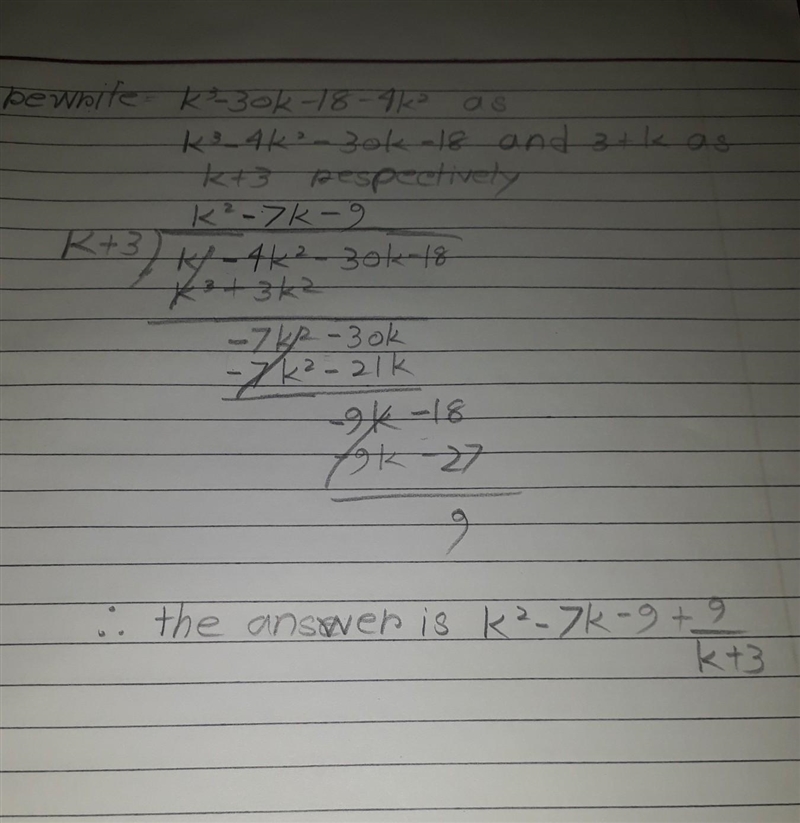 Rewrite = k³-30k-18-4k² as
k³-4k²-30k-18 and 3+k as
k+3 respectively
k²-7k-9
k+3) k³-4k²-30k-18
k³+3k²
-7k²-30k
-7k²-21k
-9k-18
-9k-27
9
∴ the answer is k²-7k-9+9/k+3